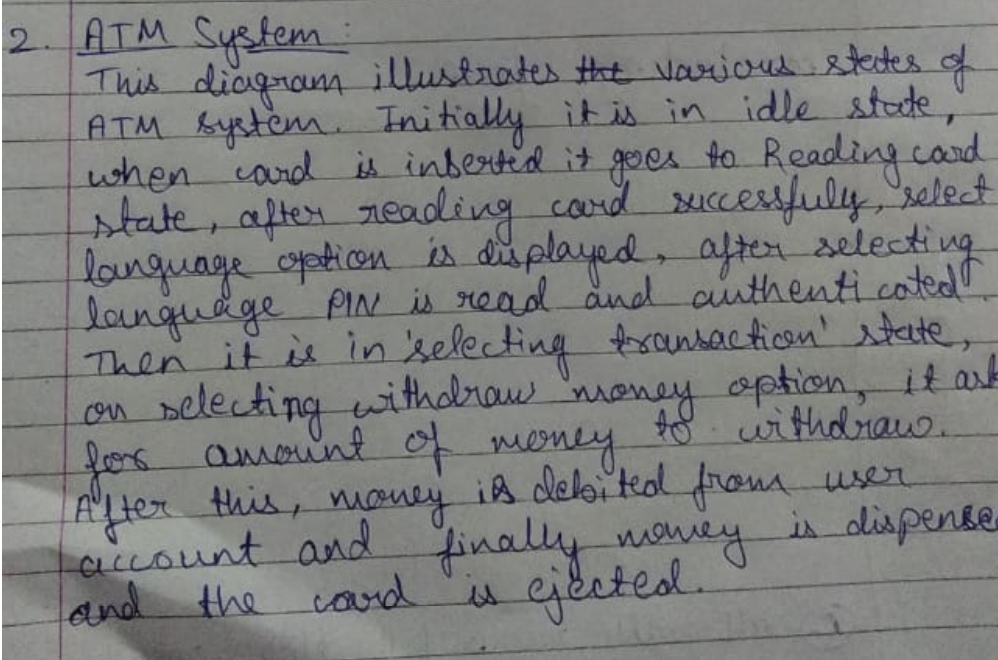 2. ATM System :
This diagram illustrates the various states of
ATM system. Initially it is in idle state,
when card is inserted it goes to Reading card
state, after reading card successfuly, select
language option is displayed, after selecting
language PIN is read and authenticated.
Then it is in 'selecting transaction' state,
on selecting withdraw money option, it ask
for amount of money to withdraw.
After this, money is debited from user
account and finally money is dispense
and the card is ejected.